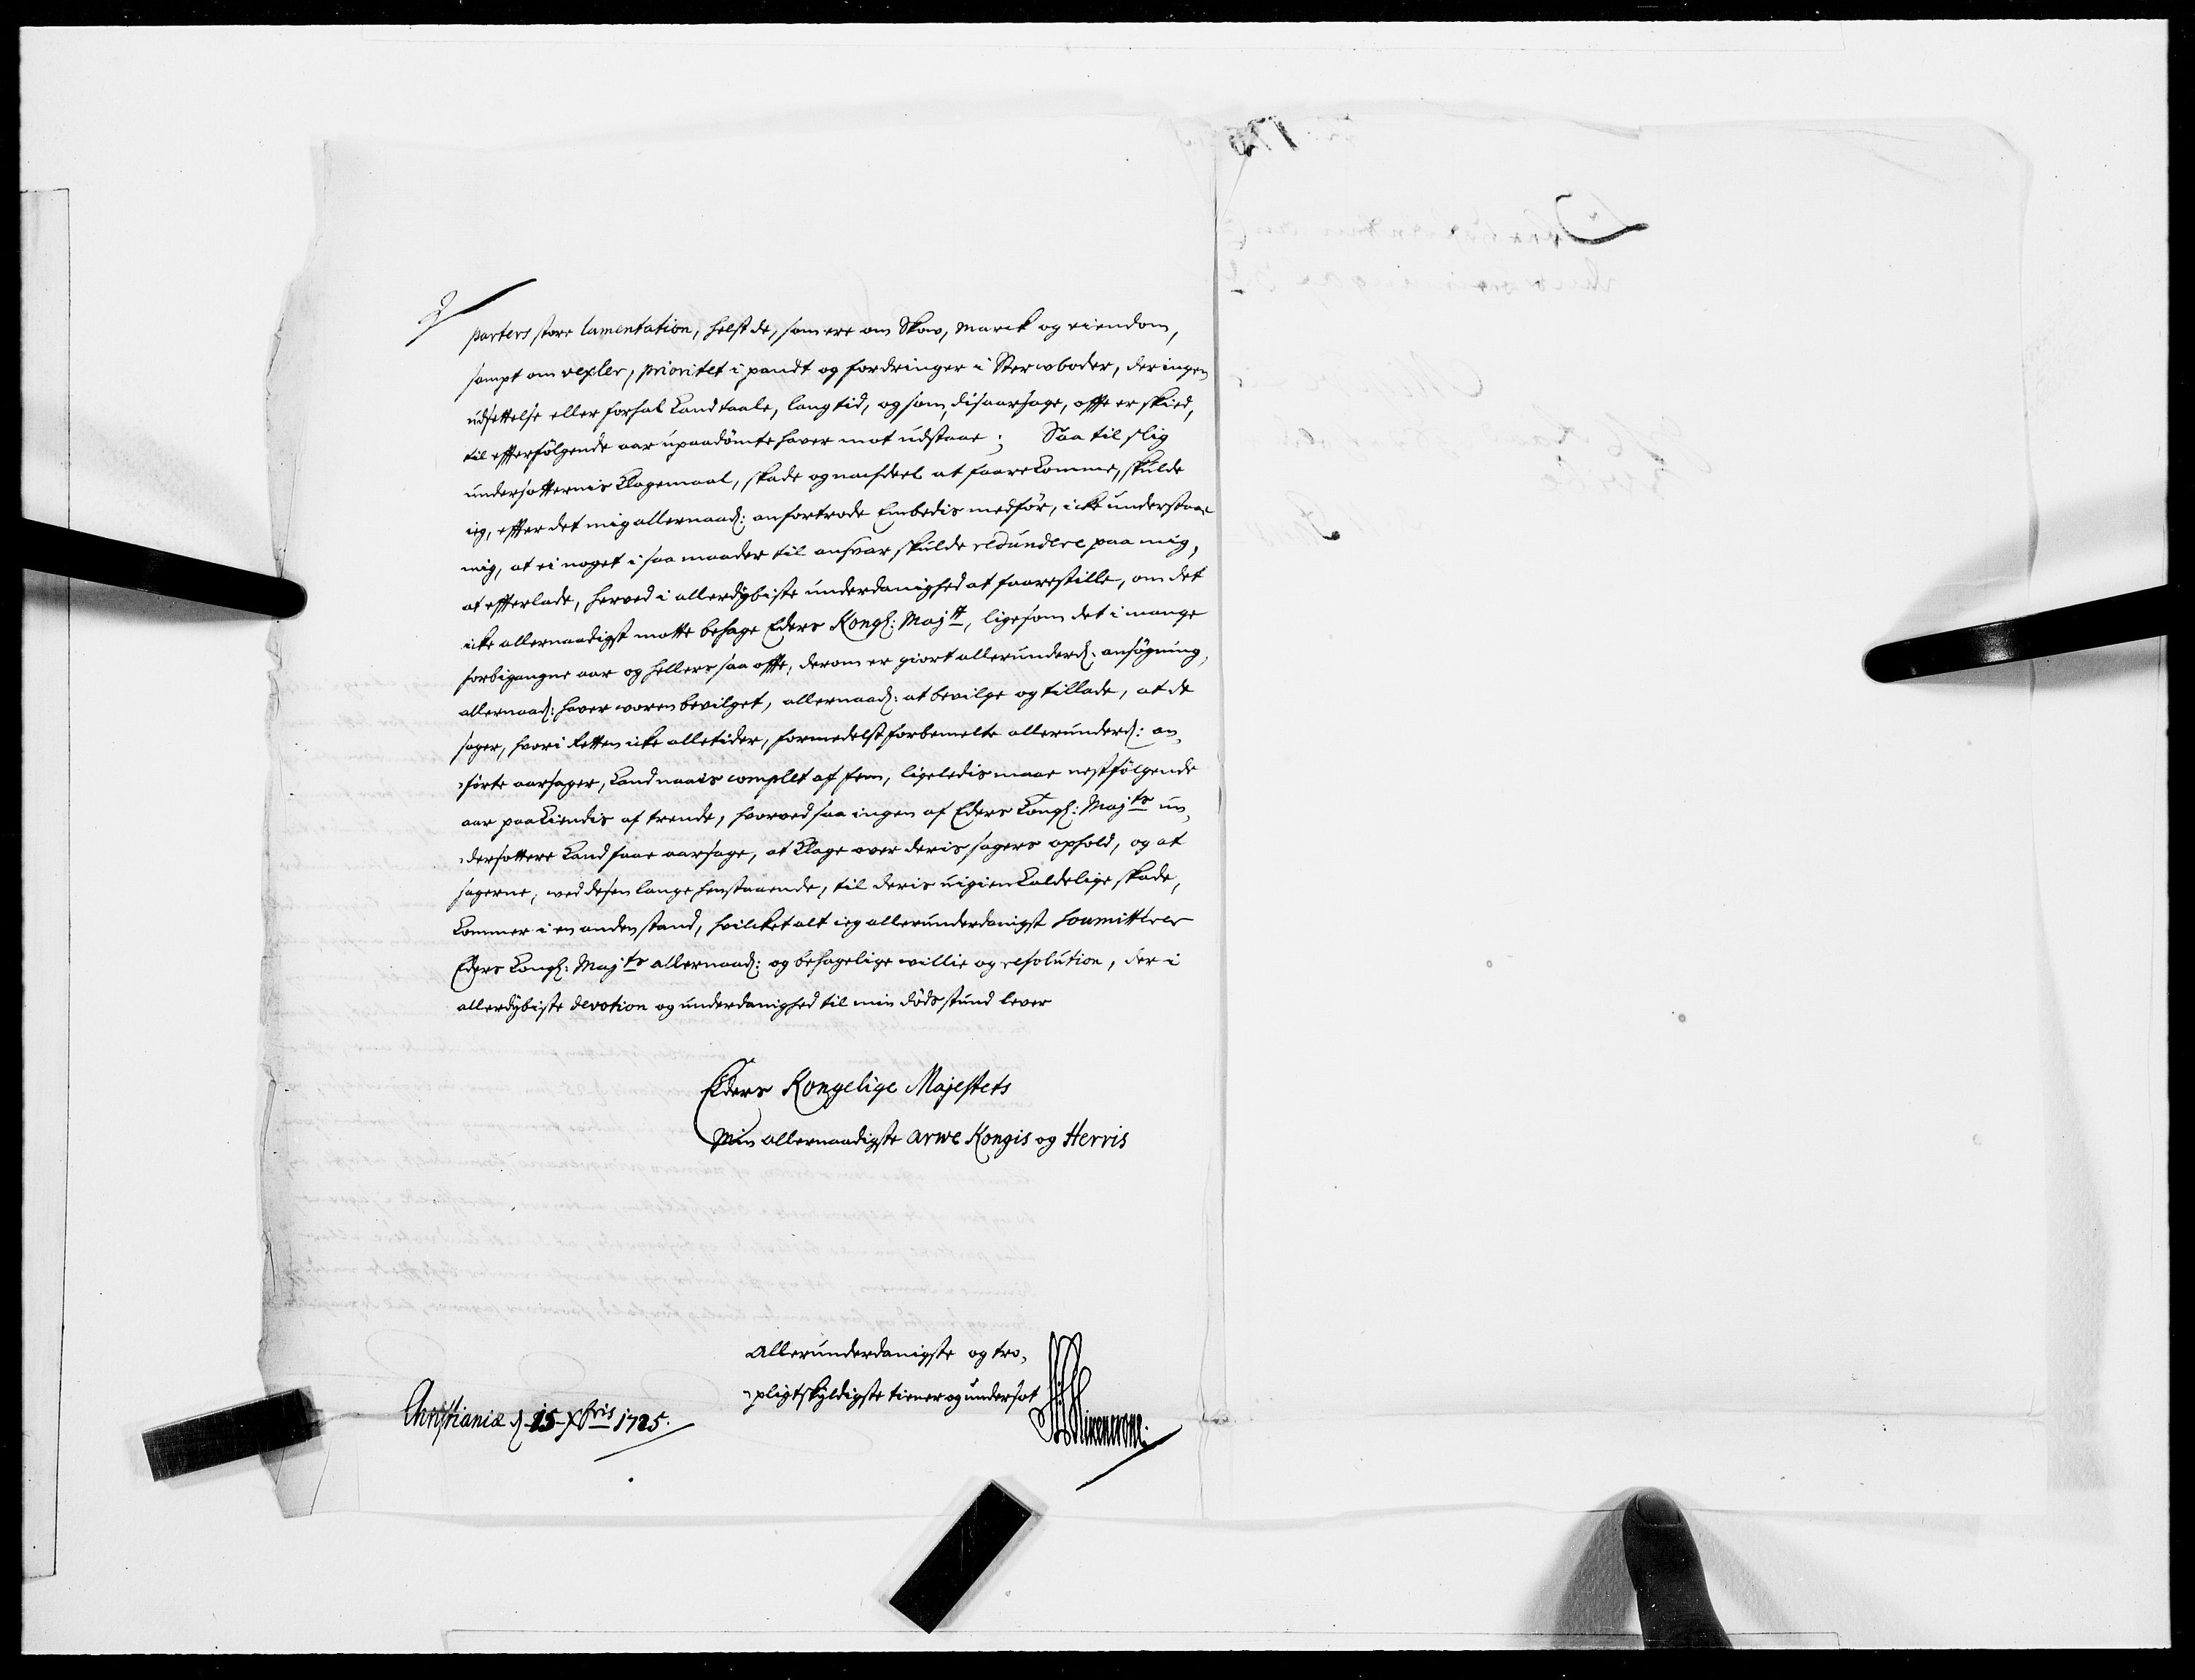 parters store lamentation, helst de, som ere om Skow, Marck og eiendom,
sampt om vexler, prioritet i pandt og fordringer i Sterwboder, der ingen
udsettelse eller forhal kand taale, lang tid, og som, disaarsage, offte er skied,
til effterfölgende aar upaadömte hawer mot udstaae; Saa til slig
undersotternis klagemaal, skade og nachdeel at faarekomme, skulde
ieg, effter det mig allernaad: anfortrode Embedis medför, icke understaae
mig, at ei noget i saa maader til answar skulde redundere paa mig,
at effterlade, herved i allerdybiste underdanighed at faarestille, om det
icke allernaadigst motte behage Eders Kongl: Maj:tt, ligesom det i mange
forbigangne aar og hellers saa offte, derom er giort allerunderd: ansögning,
allernaad: hawer woren bevilget, allernaad: at bevilge og tillade, at de
sager, hwori Retten icke alletider, formedelst forbemelte allerunderd: an-
-förte aarsager, kand naais complet af fem, ligeledis maae nestfölgende
aar paakiendis af trende, hworved saa ingen af Eders Kongl: Maj:ts un-
-dersottere kand faae aarsage, at klage ower deris sagers ophold, og at
sagerne, wed desen lange henstaaende, til deris uigienkaldelige skade,
kommer i en anden stand, hvilcket alt ieg allerunderdanigst soumitterer
Eders Kongl: Maj:ts allernaad: og behagelige willie og resolution, der i
allerdybiste devotion og underdanighed til min döds stund lever
Eders Kongelige Majestets
Min allernaadigste arwe Kongis og Herris
Allerunderdanigste og tro-
-pligtskyldigste tiener og undersot
Christianiæ d. 15 Xbris 1725.